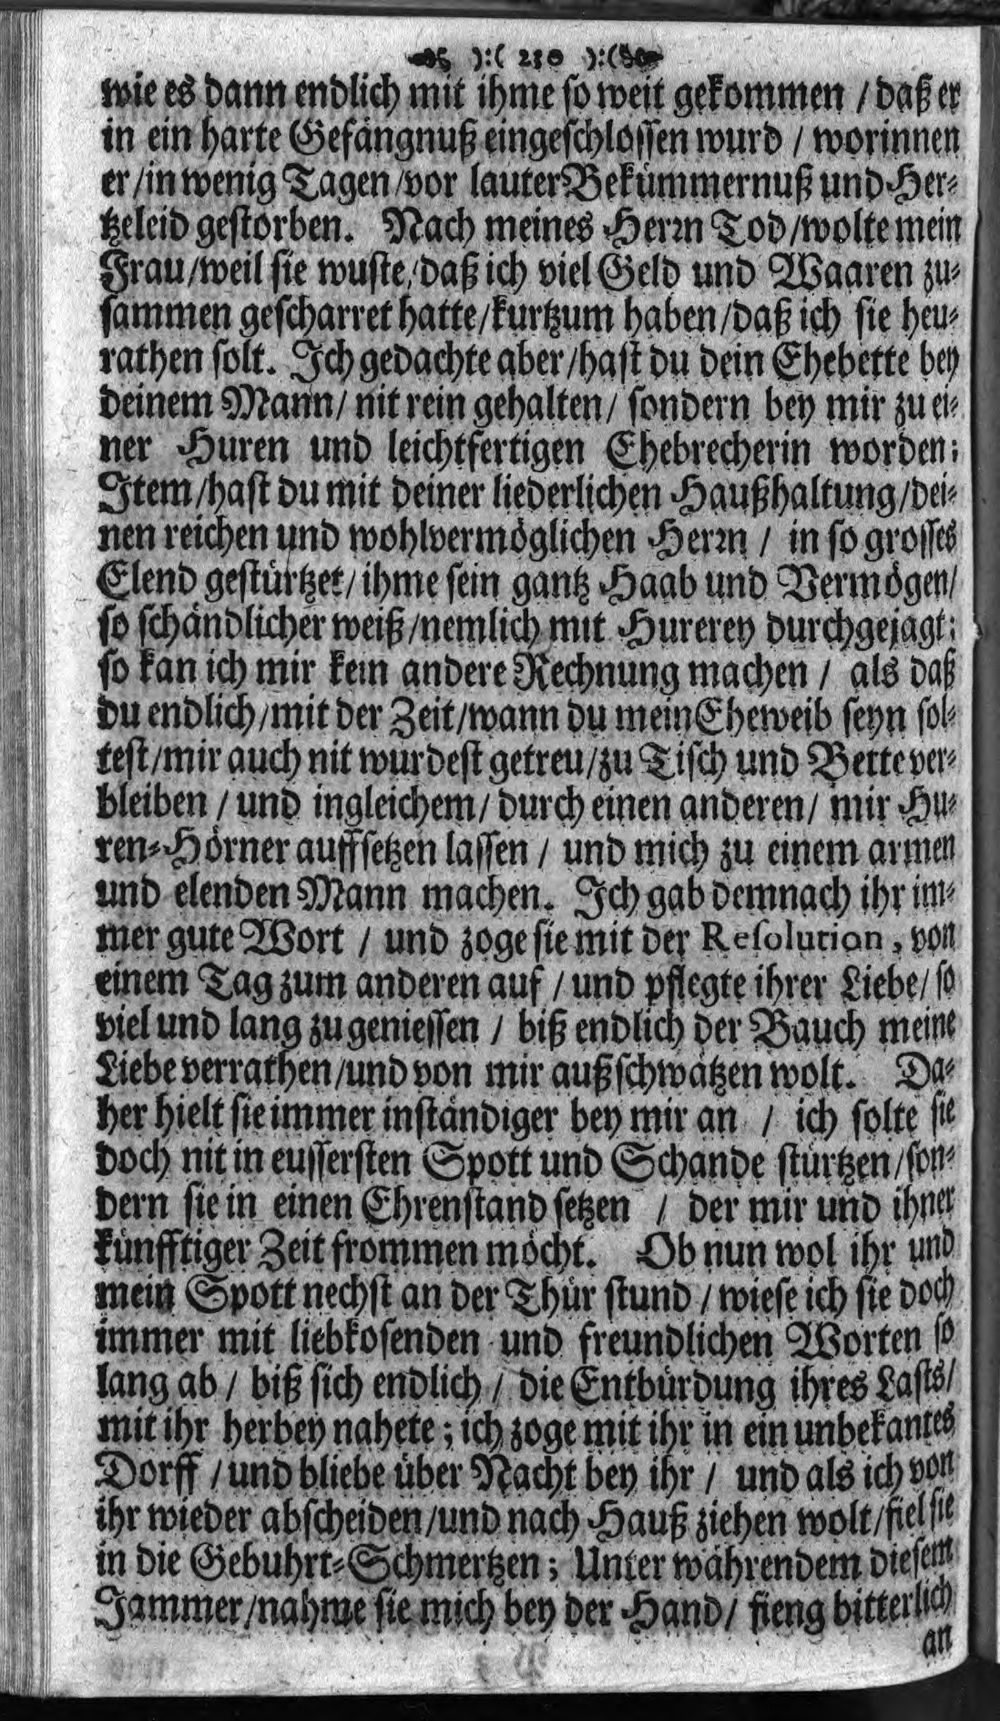 ):( 230 ):(
wie es dann endlich mit ihme so weit gekommen / daß er
in ein harte Gefängnuß eingeschlossen wurd / worinnen
er / in wenig Tagen / vor lauter Bekümmernuß und Her-
tzeleid gestorben. Nach meines Herrn Tod / wolte mein
Frau / weil sie wuste / daß ich viel Geld und Waaren zu-
sammen gescharret hatte / kurtzum haben / daß ich sie heu-
rathen solt. Ich gedachte aber / hast du dein Ehebette bey
deinem Mann / nit rein gehalten / sondern bey mir zu ei-
ner Huren und leichtfertigen Ehebrecherin worden;
Item / hast du mit deiner liederlichen Haußhaltung / dei-
nen reichen und wohlvermöglichen Herrn / in so grosses
Elend gestürtzet / ihme sein gantz Haab und Vermögen /
so schändlicher weiß / nemlich mit Hurerey durchgejagt;
so kan ich mir kein andere Rechnung machen / als daß
du endlich / mit der Zeit / wann du mein Eheweib seyn sol-
test / mir auch nit wurdest getreu / zu Tisch und Bette ver-
bleiben / und ingleichem / durch einen anderen / mir Hu-
ren-Hörner auffsetzen lassen / und mich zu einem armen
und elenden Mann machen. Ich gab demnach ihr im-
mer gute Wort / und zoge sie mit der Resolution, von
einem Tag zum anderen auf / und pflegte ihrer Liebe / so
viel und lang zu geniessen / biß endlich der Bauch meine
Liebe verrathen / und von mir außschwätzen wolt. Da-
her hielt sie immer inständiger bey mir an / ich solte sie
doch nit in eussersten Spott und Schande stürtzen / son-
dern sie in einen Ehrenstand setzen / der mir und ihner
künfftiger Zeit frommen möcht. Ob nun wol ihr und
mein Spott nechst an der Thür stund / wiese ich sie doch
immer mit liebkosenden und freundlichen Worten so
lang ab / biß sich endlich / die Entbürdung ihres Lasts /
mit ihr herbey nahete; ich zoge mit ihr in ein unbekantes
Dorff / und bliebe über Nacht bey ihr / und als ich von
ihr wieder abscheiden / und nach Hauß ziehen wolt / fiel sie
in die Gebuhrt-Schmertzen; Unter währendem diesem
Jammer / nahme sie mich bey der Hand / fieng bitterlich
an